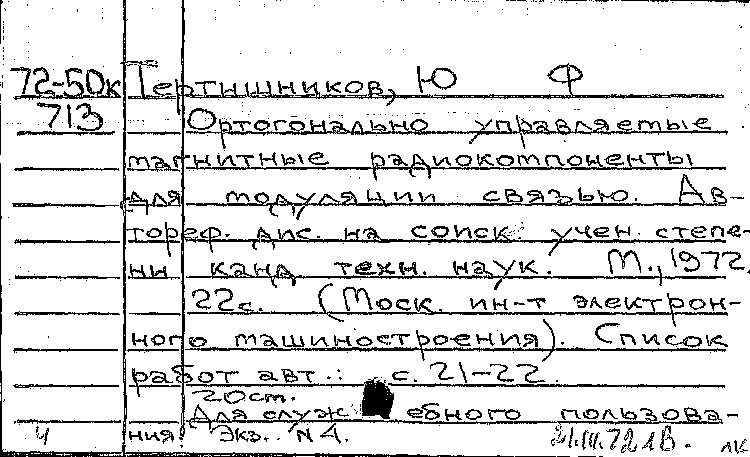 72-50к Тертышников, Ю Ф
713 Ортогонально управляемые
магнитные радиокомпоненты
для модуляции связью. Ав-
тореф. дис. на соиск. учен. степе-
ни канд. техн. наук. М., 1972.
22с. (Моск. ин-т электрон-
ного машиностроения). Список
работ авт.: с. 21-22.
20см.
Для служебного пользова-
4 ния. Экз. N 4. 21.III.72 1В. лк